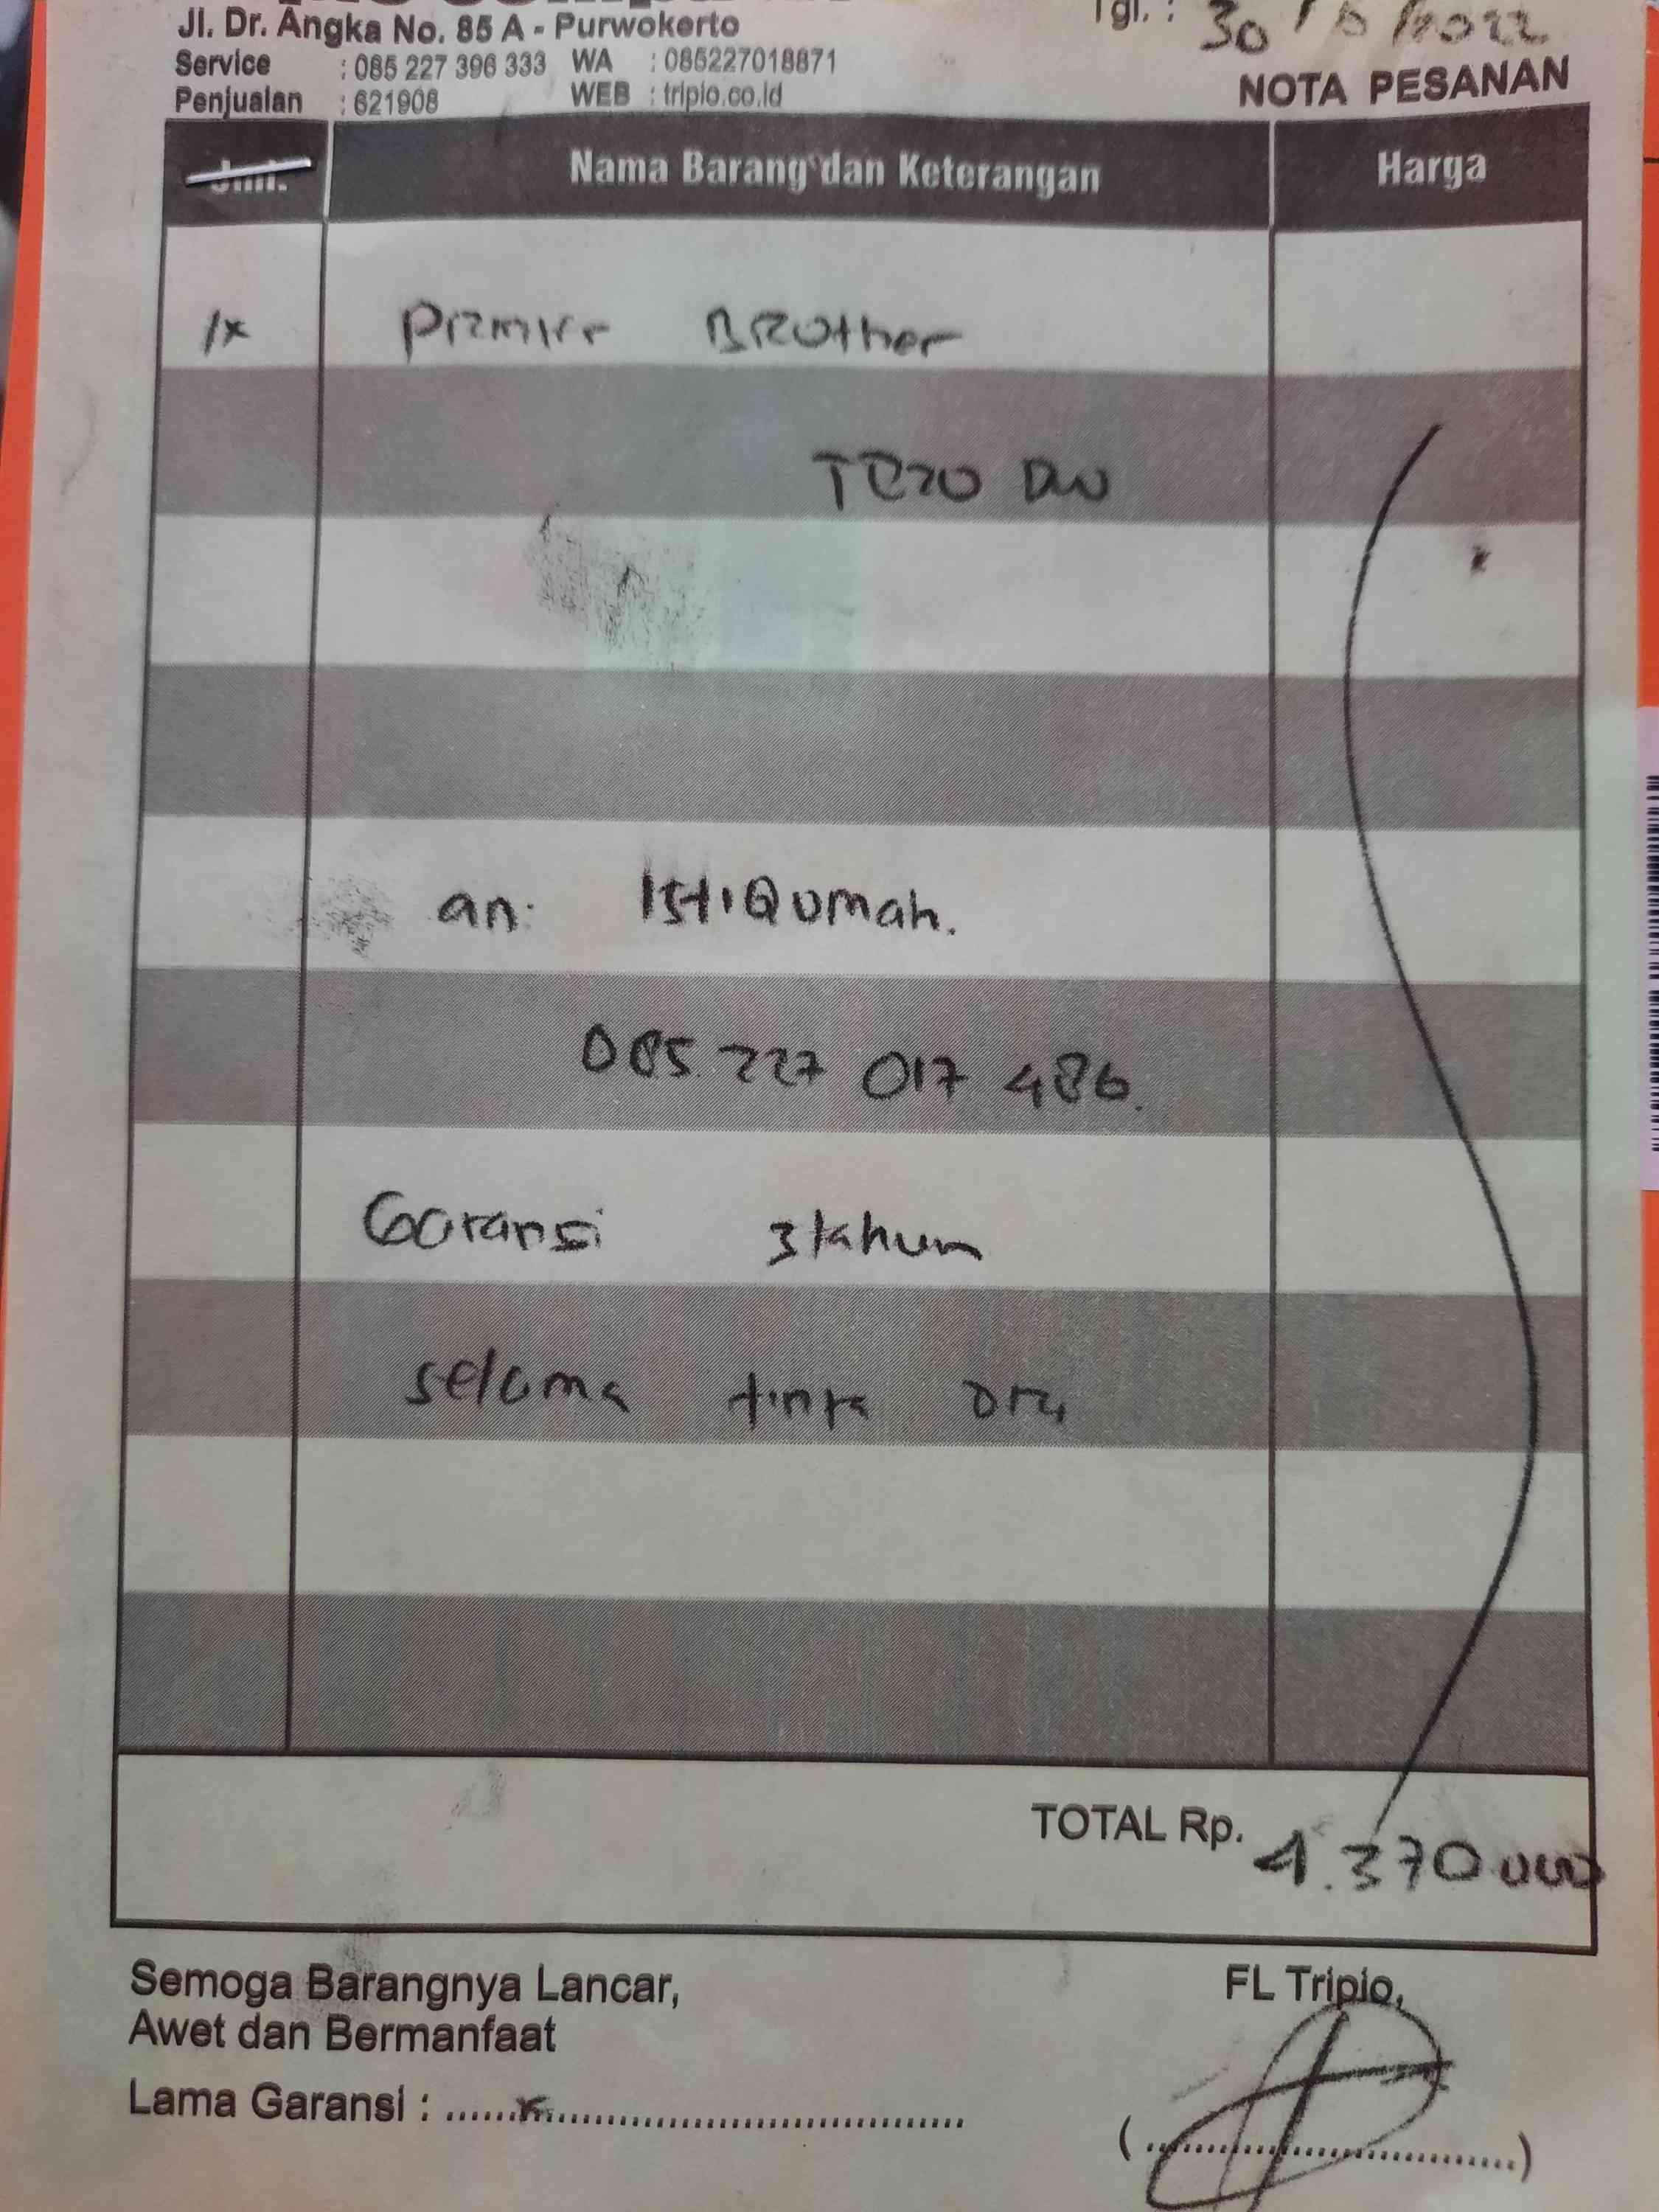 Jl. Dr. Angka No. 85 A - Purwokerto
Tgl. : 30 / /2022
Service : 085 227 396 333 WA : 085227018871
Penjualan : 621908 WEB : tripio.co.id
NOTA PESANAN
Nama Barang dan Keterangan Harga
1x Printer BROther
an: IstiQomah.
085 227 017 486.
Garansi 3 tahun
selama tinta ori
TOTAL Rp. 4.370 000
Semoga Barangnya Lancar,
Awet dan Bermanfaat
FL Tripio,
Lama Garansi :